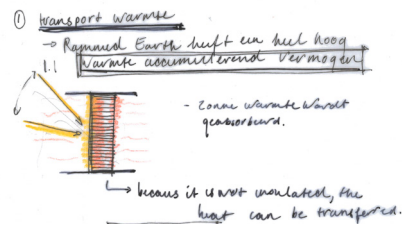 ① transport warmte
→ Rammed Earth heeft een heel hoog
warmte accumulerend vermogen
1.1
- zonne warmte wordt
geabsorbeerd.
↳ becaus it is not insulated, the
heat can be transferred.